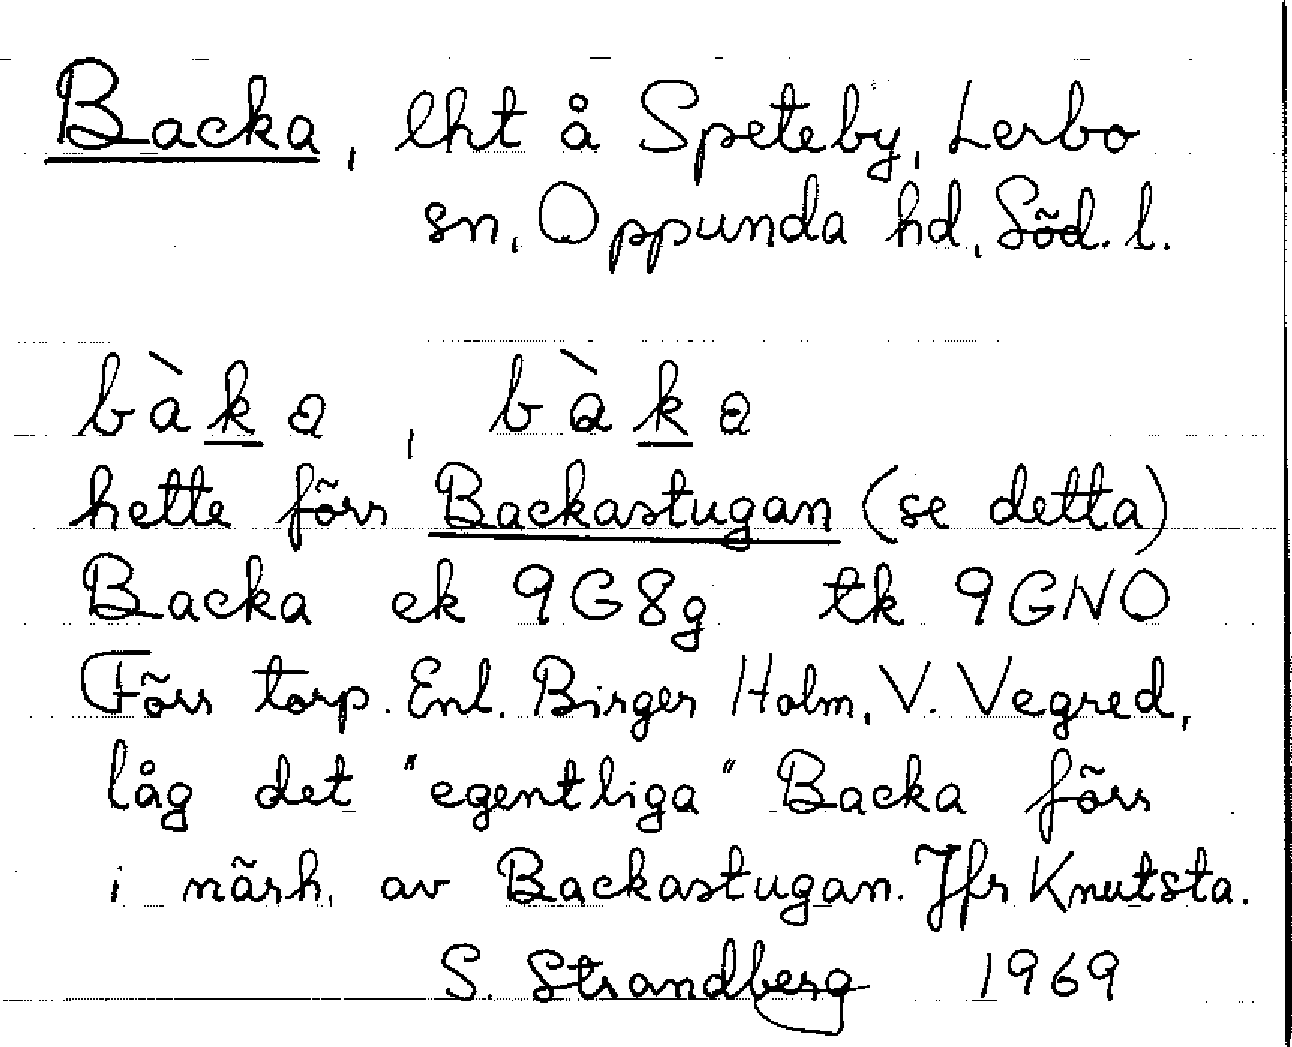 Backa, lht å Speteby, Lerbo
sn, Oppunda hd, Söd. l.
bàka, bàka
hette förr Backastugan (se detta)
Backa ek 9G8g tk 9GNO
Förr torp. Enl. Birger Holm, V. Vegred,
låg det "egentliga" Backa förr
i närh. av Backastugan. Jfr Knutsta.
S. Strandberg 1969